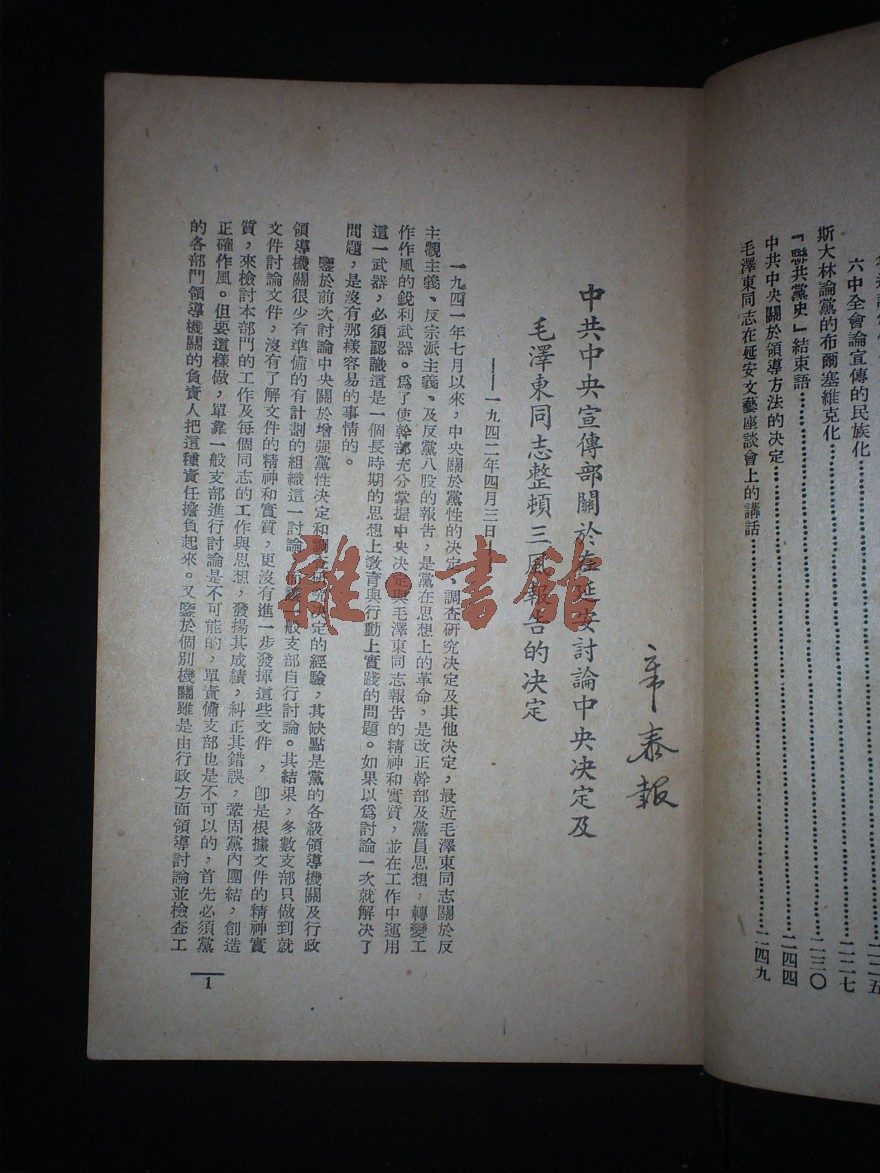 六中全會論宣傳的民族化……二二五
斯大林論黨的布爾塞維克化……二二七
「聯共黨史」結束語……二三〇
中共中央關於領導方法的决定……二四四
毛澤東同志在延安文藝座談會上的講話……二四九
中共中央宣傳部關於在延安討論中央决定及
毛澤東同志整頓三風報告的决定
——一九四二年四月三日——
一九四一年七月以來，中央關於黨性的决定、調查研究决定及其他决定，最近毛澤東同志關於反
主觀主義、反宗派主義、及反黨八股的報告，是黨在思想上的革命，是改正幹部及黨員思想，轉變工
作作風的銳利武器。爲了使幹部充分掌握中央决定與毛澤東同志報告的精神和實質，並在工作中運用
這一武器，必須認識這是一個長時期的思想上敎育與行動上實踐的問題。如果以爲討論一次就解决了
問題，是沒有那樣容易的事情的。
鑒於前次討論中央關於增强黨性决定和調查研究决定的經驗，其缺點是黨的各級領導機關及行政
領導機關很少有準備的有計劃的組織這一討論，而讓一般支部自行討論。其結果，多數支部只做到就
文件討論文件，沒有了解文件的精神和實質，更沒有進一步發揮這些文件，卽是根據文件的精神實
質，來檢討本部門的工作及每個同志的工作與思想，發揚其成績，糾正其錯誤，鞏固黨內團結，創造
正確作風。但要這樣做，單靠一般支部進行討論是不可能的，單責備支部也是不可以的，首先必須黨
的各部門領導機關的負責人把這種責任擔負起來。又鑒於個別機關雖是由行政方面領導討論並檢查工
1
雜·書館